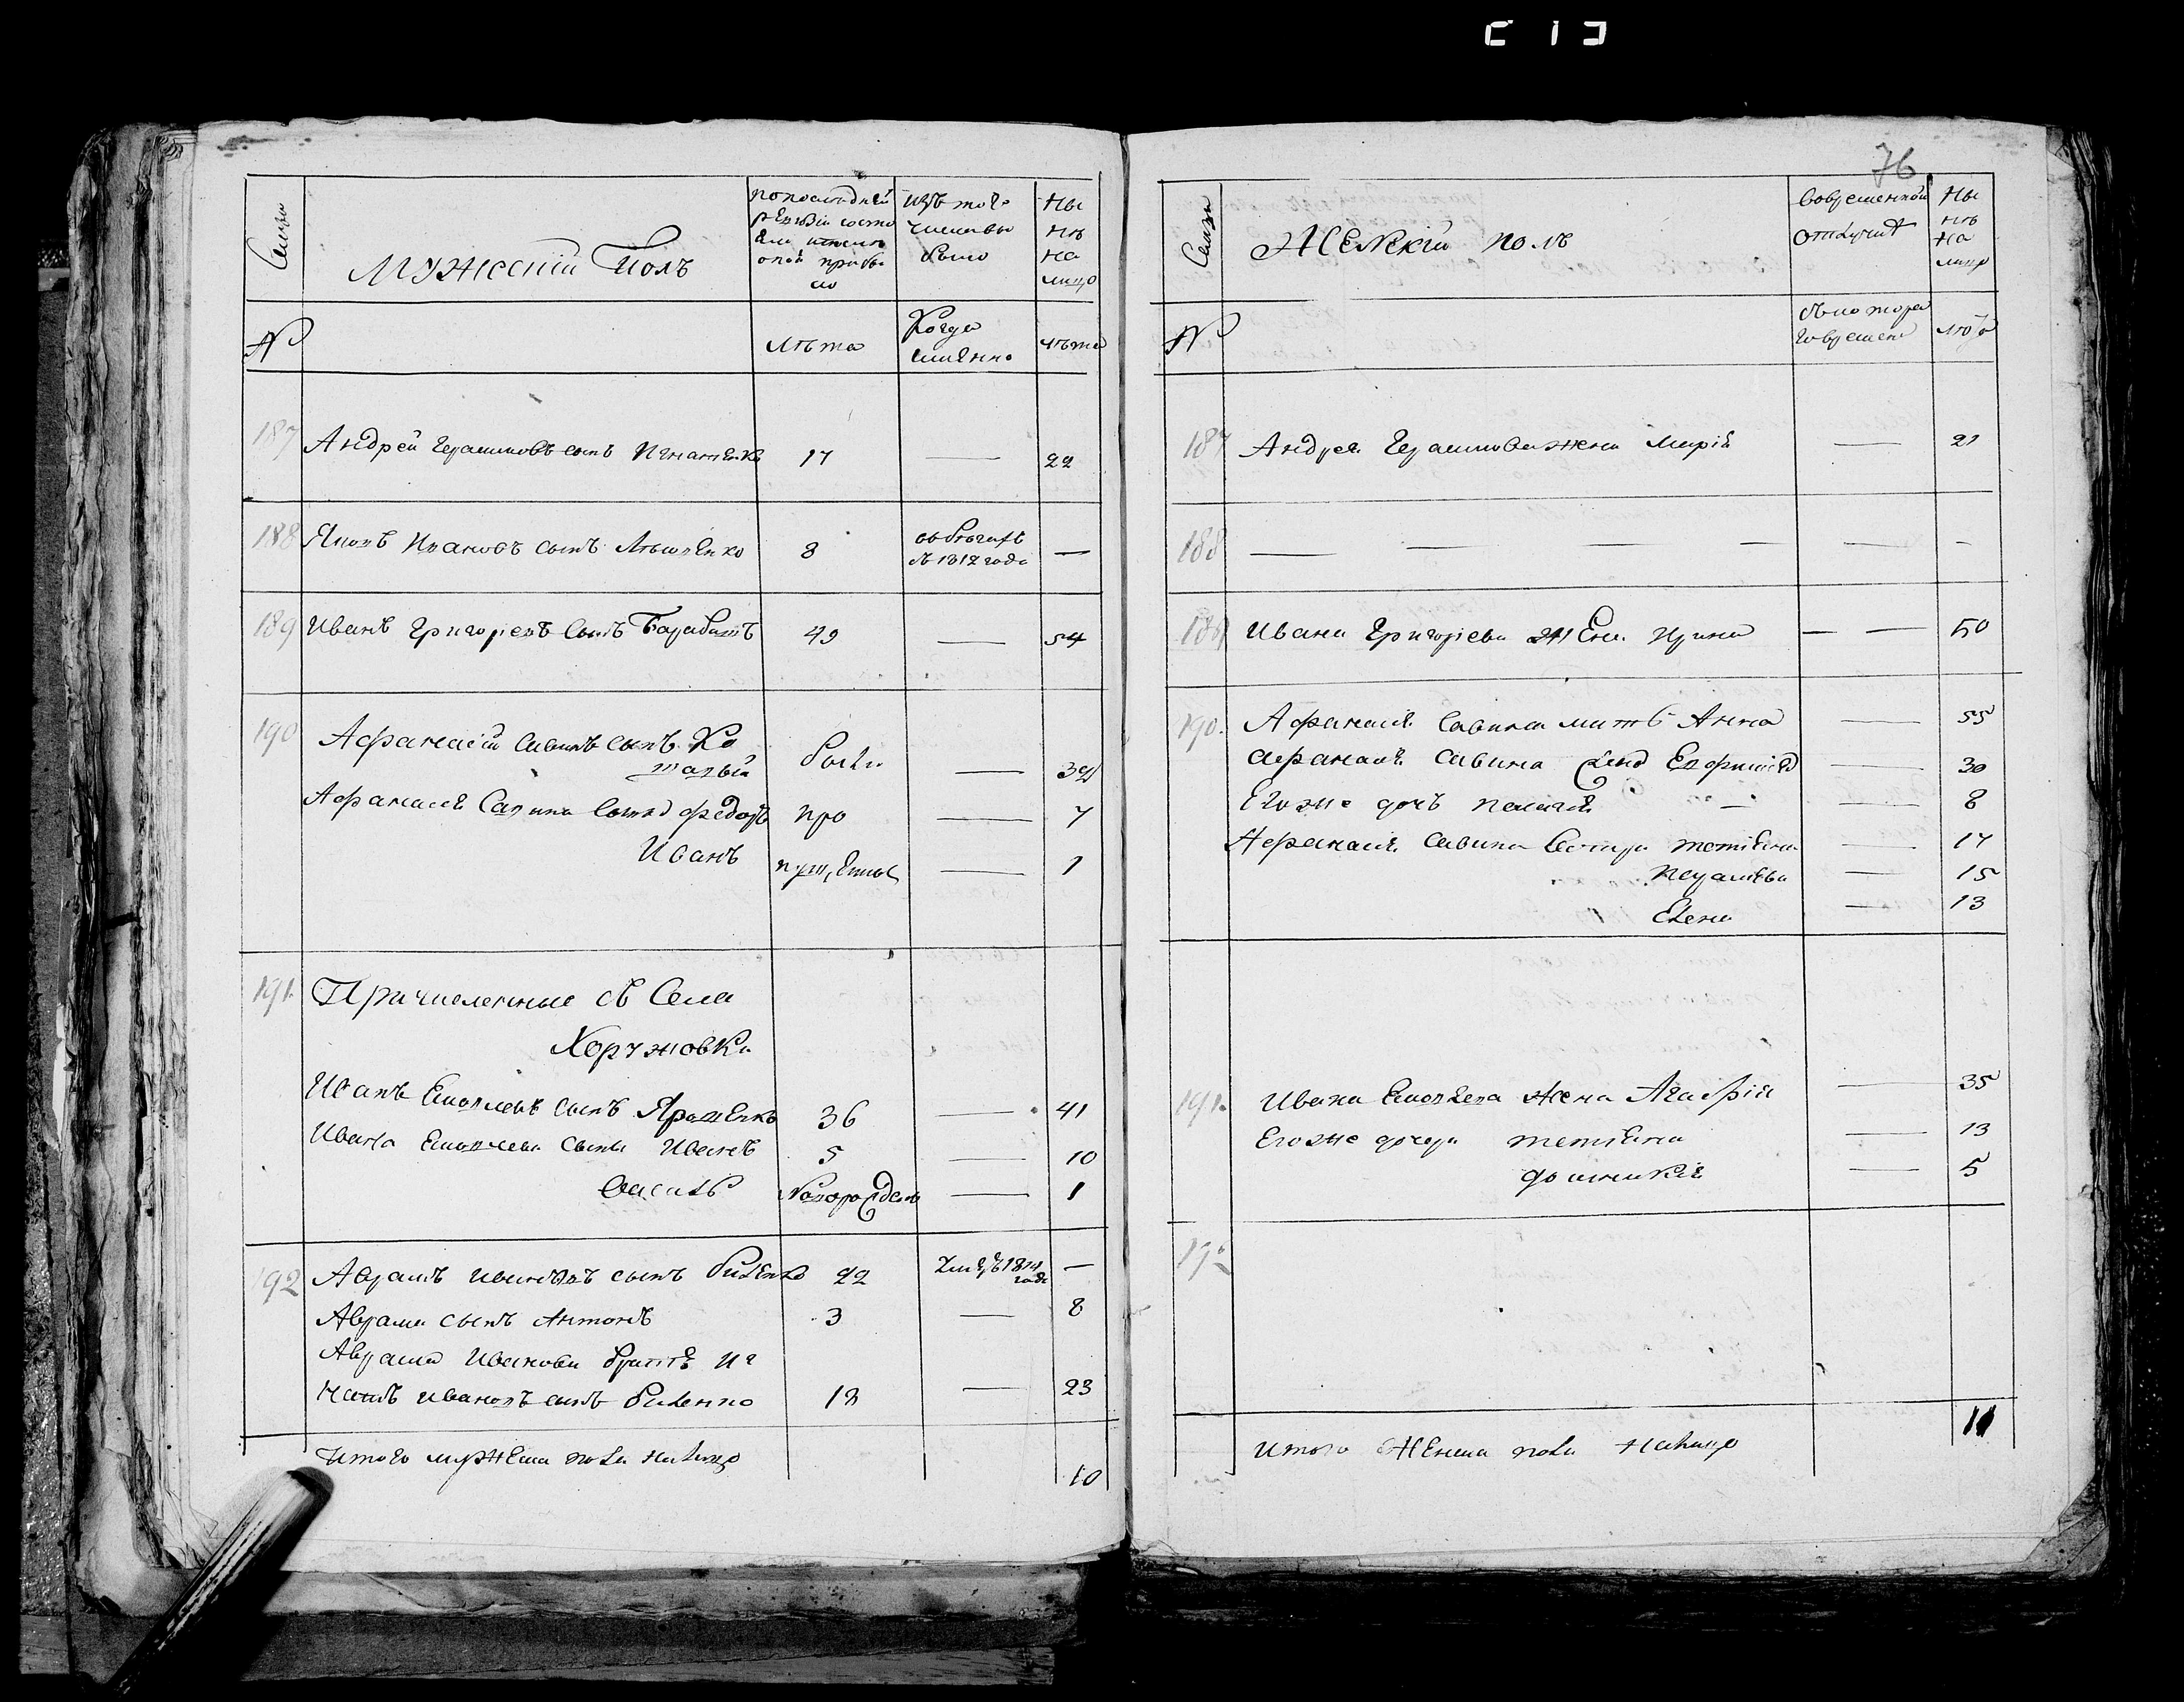 76
Семьи
Мужескій Полъ
по последней
ревизіи состо
яло и после
оной прибы
ло
изъ того
числа вы
было
Ны
нѣ
на
лицо
№
лѣта
Когда
именно
лѣта
187 Андрей Герасимовъ сынъ Игнатенко 17 — 22
188 Яковъ Ивановъ сынъ 8 въ бегахъ
съ 1812 года —
189 Иванъ Григорьевъ сынъ Барабашъ 49 — 54
190 Афанасій Савинъ сынъ Ко
валый были — 32
Афанасія Савина сыновья Федоръ про — 7
Иванъ пущены — 1
191. Причисленные съ Села
Хоружовки
Иванъ Емельяновъ сынъ Ярошенко 36 — 41
Ивана Емельянова сыны Иванъ 5 — 10
Василь Новорожденъ — 1
192 Аврамъ Ивановъ сынъ Биленко 22 умеръ 1814
года —
Аврама сынъ Антонъ 3 — 8
Аврама Иванова братъ Иг
натъ Ивановъ сынъ Биленко 18 — 23
Итого мужеска пола налицо 10
Семьи
Женскій полъ
Во временной
отлучкѣ
Ны
нѣ
на
лицо
№
съ котора
го времени
лѣта
187 Андрея Герасимова жена Марія — 21
188 — — — — — -
189 Ивана Григорьева жена Ирина — — 50
190. Афанасія Савина мать Анна — 55
Афанасія Савина жена Евфимія — 30
Его же дочь Пелагея — — 8
Афанасія Савина сестры Тетiяна — 17
— 15
Елена — 13
191. Ивана Емельянова жена Агафія — 35
Его же дочери Тетiяна — 13
Домникія — 5
192
Итого женска пола налицо 11